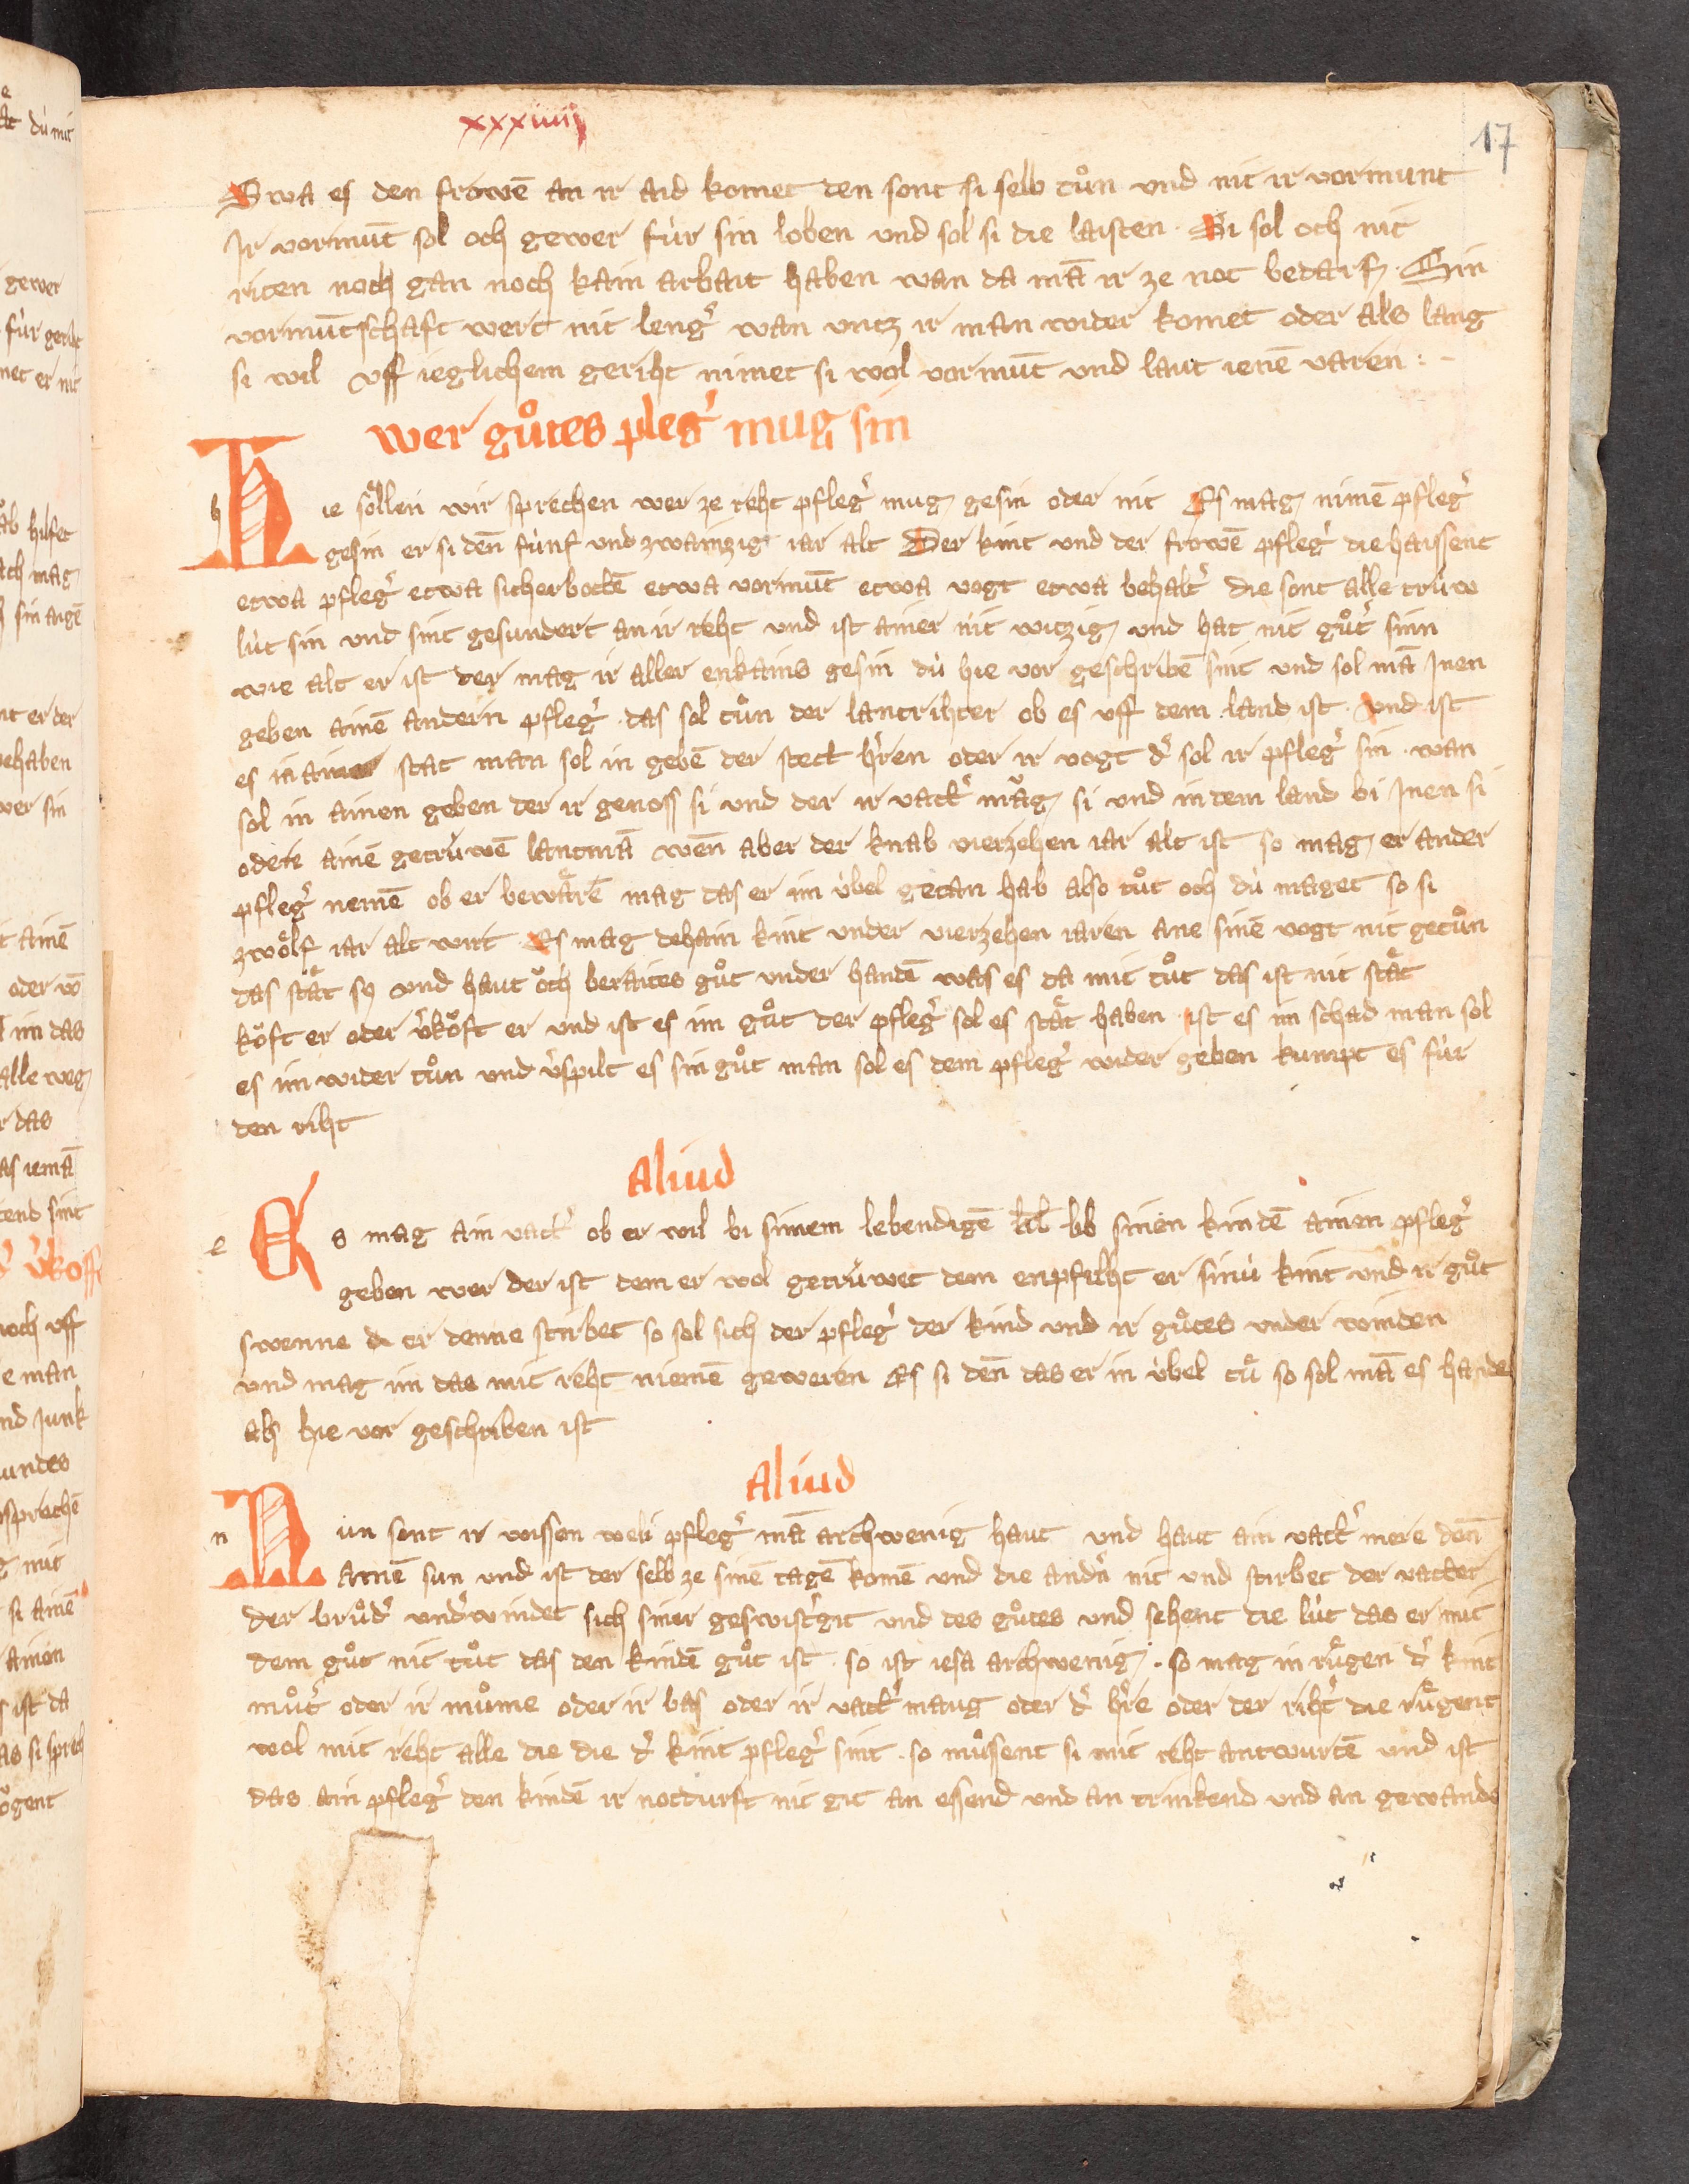 xxxiiiij
17
Swa es den frowē an ir aid komet den sont si selb tůn vnd nit ir vormunt
Jr vormūt sol och gewer fúr sin loben vnd sol si die laisten · Si sol och nit
riten noch gan noch kain arbait haben wan da mā ir ze not bedarf · Sin
vormūtschaft wert nit leng' wan vntz ir man wider komet oder als lang
si wil vff ieglichem geriht nimet si wol vormūt vnd laut ienē varen : -
wer gůtes pleg' mug sin
h
Hie sŏllen wir sprechen wer ze reht pfleg' mug gesin oder nit Es mag nimē pfleg'
gesin er si deñ fúnf vnd zwainzig iar alt Der kint vnd der frowē pfleg' die haissent
etwa pfleg' etwa sicherbottē etwa vormūt etwa vogt etwa behalt' die sont alle trúw
lút sin vnd sint gesundert an ir reht vnd ist ainer nit witzig vnd hat nit gůt' sinn
wie alt er ist der mag ir aller enkains gesin dú hie vor geschribē sint vnd sol mā Jnen
geben ainē andern pfleg' · das sol tůn der lantrihter ob es vff dem land ist · Vnd ist
es in ainer stat man sol in gebē der stett h'ren oder ir vogt d' sol ir pfleg' sin · wan
sol in ainen geben der ir genoss si vnd der ir vatt' mǎg si vnd in dem land bi Jnen si
oder ainē getrúwē lantmā wen̄ aber der knab vierzehen iar alt ist so mag er ander
pfleg' nemē ob er bewǎrē mag das er im úbel getan hab also tůt och dú maget so si
zwŏlf iar alt wirt Es mag dehain kint vnder vierzehen iaren ane sinē vogt nit getůn
das stǎt sy vnd haut ŏch beraites gůt vnder handē was es da mit tůt das ist nit stǎt
kŏft er oder v'kŏft er vnd ist es im gůt der pfleg' sol es stǎt haben ist es im schad man sol
es im wider tůn vnd v'spilt es sin gůt man sol es dem pfleg' wider geben kumpt es fúr
den riht
Aliud
e
Es mag ain vatt' ob er wil bi sinem lebendigē lib sinen kindē ainen pfleg'
geben wer der ist dem er wol getrúwet dem enpfilht er sinú kint vnd ir gůt
swenne er denne stirbet so sol sich der pfleg' der kind vnd ir gůtes vnder winden
vnd mag im das mit reht niemē geweren Es si den̄ das er in úbel tů so sol mā es hande
als hie vor geschriben ist
Aliud
n
Nun sont ir wissen weli pfleg' mā archwenig haut vnd haut ain vatt' mere den̄
ainē sun vnd ist der selb ze sinē tagē komē vnd die and'n nit vnd stirbet der vatter
der brůd' vnd'windet sich siner geswist'git vnd des gůtes vnd sehent die lút das er mit
dem gůt nit tůt das den kindē gůt ist · so ist iesa archwenig · so mag in růgen d' kint
můt' oder ir můme oder ir bas oder ir vatt' maug oder d' h're oder der riht' die růgent
wol mit reht alle die die d' kint pfleg' sint · so můssent si mit reht antwurtē vnd ist
das ain pfleg' den kindē ir notdurft nit git an essend vnd an trinkend vnd an gewande